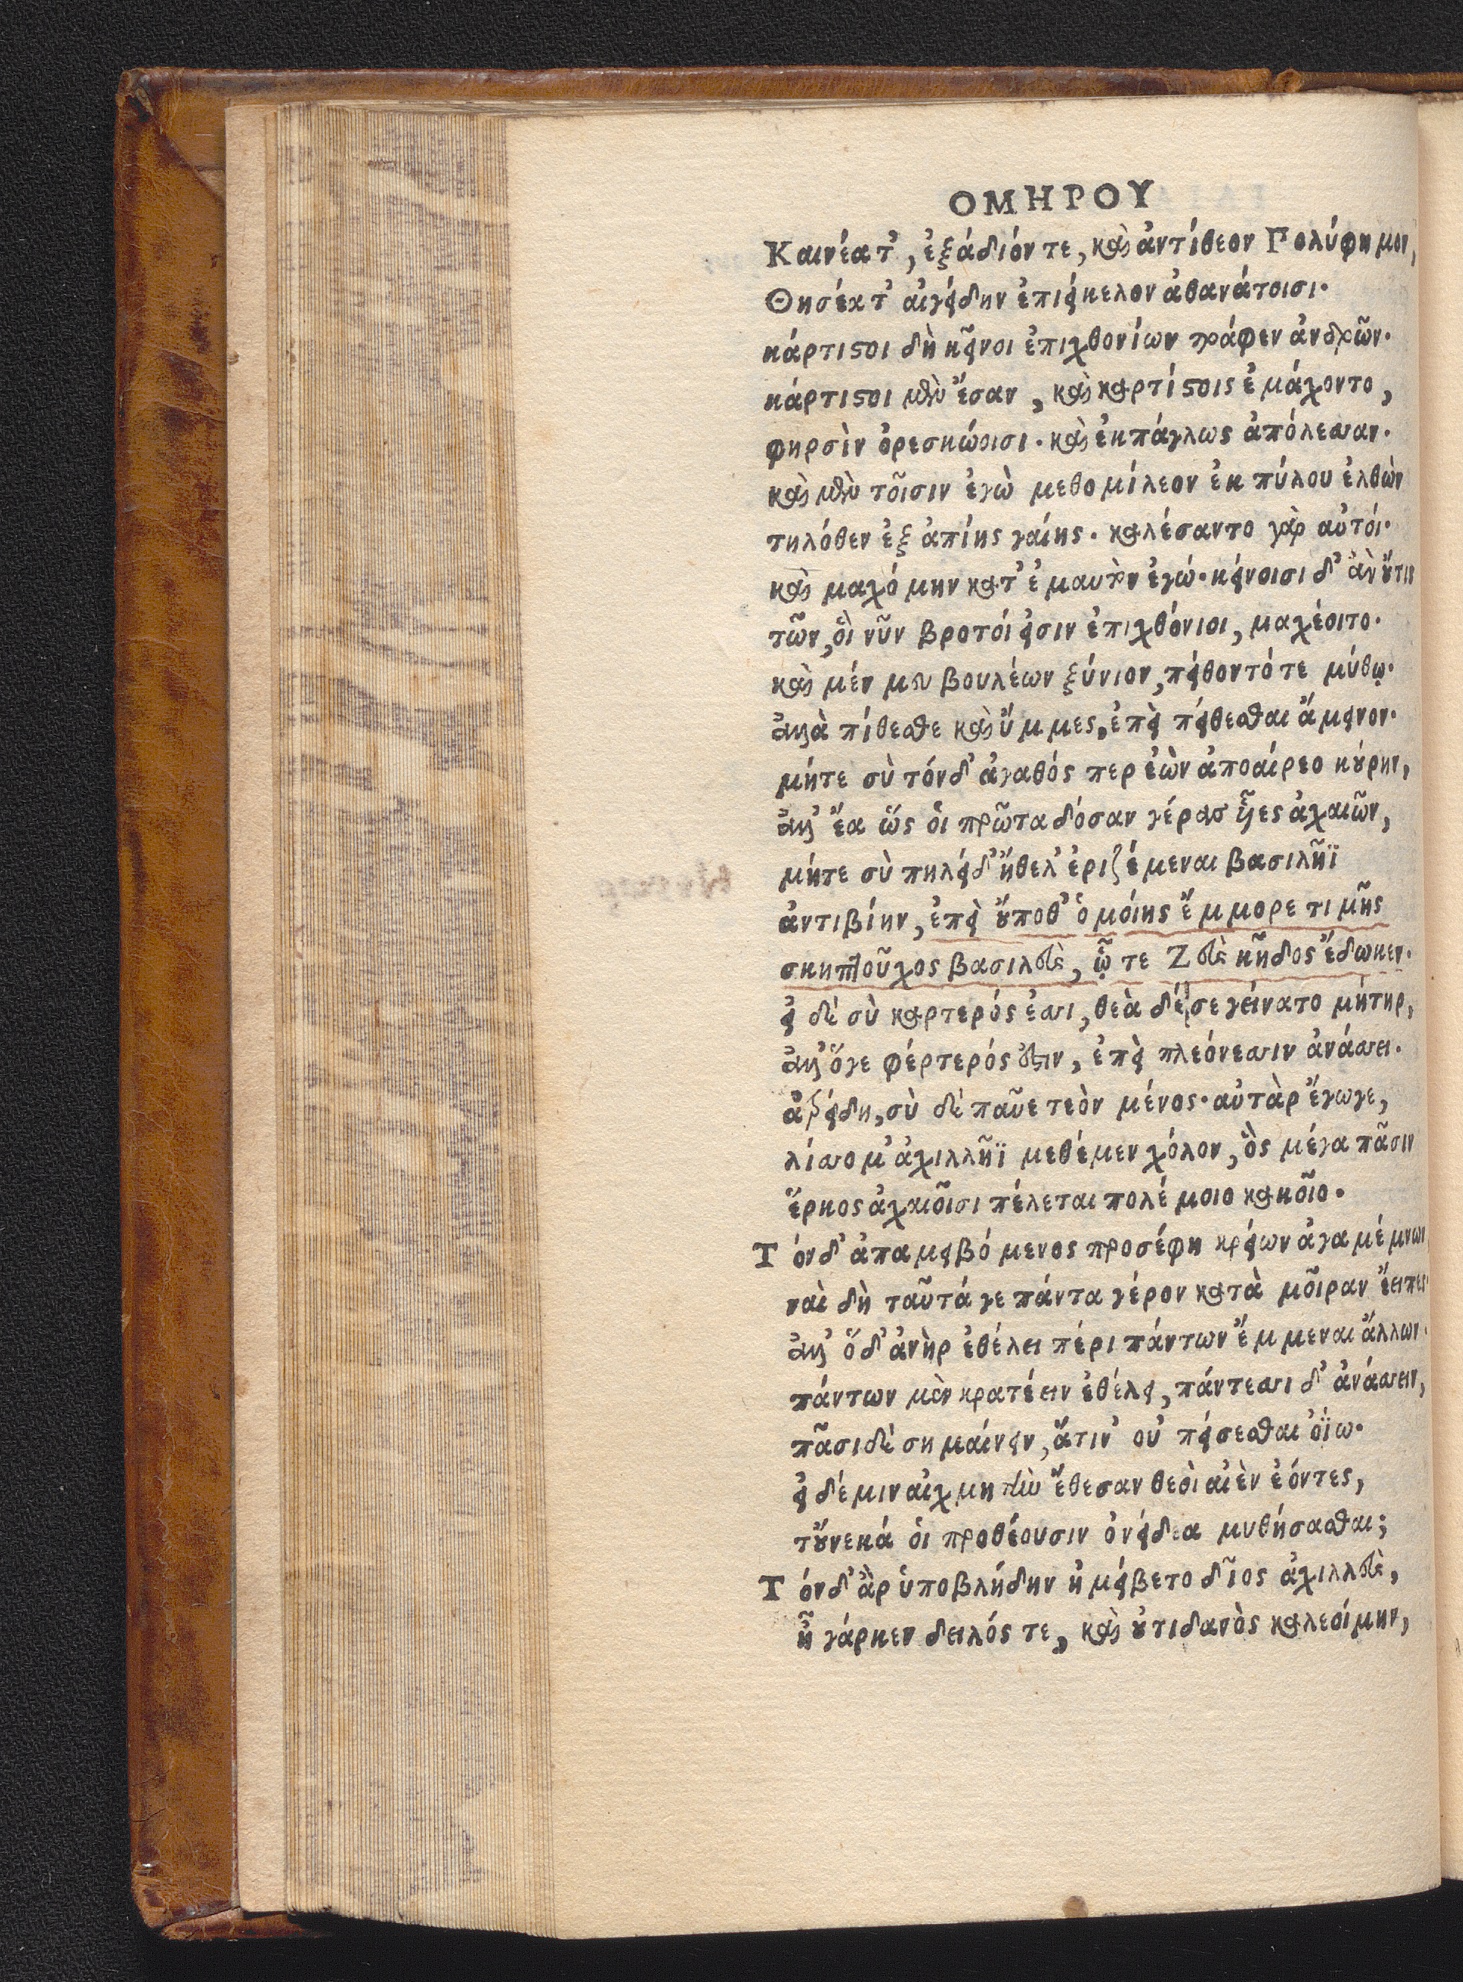 ΟΜΗΡΟΥ
Καινέα τ', ἐξάδιόν τε, καὶ ἀντίθεον Πολύφημον,
Θησέα τ' αἰγείδην ἐπιείκελον ἀθανάτοισι·
κάρτιστοι δὴ κεῖνοι ἐπιχθονίων τράφεν ἀνδρῶν·
κάρτιστοι μὲν ἔσαν, καὶ καρτίστοις ἐμάχοντο,
φηρσὶν ὀρεσκώοισι· καὶ ἐκπάγλως ἀπόλεσσαν·
καὶ μὲν τοῖσιν ἐγὼ μεθομίλεον ἐκ πύλου ἐλθὼν
τηλόθεν ἐξ ἀπίης γαίης· καλέσαντο γὰρ αὐτοί·
καὶ μαχόμην κατ' ἐμαυτὸν ἐγώ· κείνοισι δ' ἂν οὔτις
τῶν, οἳ νῦν βροτοί εἰσιν ἐπιχθόνιοι, μαχέοιτο·
καὶ μέν μου βουλέων ξύνιον, πείθοντό τε μύθῳ·
ἀλλὰ πίθεσθε καὶ ὔμμες, ἐπεὶ πείθεσθαι ἄμεινον·
μήτε σὺ τόνδ' ἀγαθός περ ἐὼν ἀποαίρεο κούρην,
ἀλλ' ἔα ὥς οἱ πρῶτα δόσαν γέρας υἷες ἀχαιῶν,
μήτε σὺ πηλείδ' ἤθελ' ἐριζέμεναι βασιλῆϊ
ἀντιβίην, ἐπεὶ οὔποθ' ὁμοίης ἔμμορε τιμῆς
σκηπτοῦχος βασιλεὺς, ᾧ τε Ζεὺς κῆδος ἔδωκεν·
εἰ δὲ σὺ καρτερός ἐσσι, θεὰ δέ σε γείνατο μήτηρ,
ἀλλ' ὅγε φέρτερός ἐστιν, ἐπεὶ πλεόνεσσιν ἀνάσσει·
ἀτρείδη, σὺ δὲ παῦε τεὸν μένος· αὐτὰρ ἔγωγε,
λίσσομ' ἀχιλλῆϊ μεθέμεν χόλον, ὃς μέγα πᾶσιν
ἕρκος ἀχαιοῖσι πέλεται πολέμοιο κακοῖο·
Τόνδ' ἀπαμειβόμενος προσέφη κρείων ἀγαμέμνων
ναὶ δὴ ταῦτά γε πάντα γέρον κατὰ μοῖραν ἔειπες·
ἀλλ' ὅδ' ἀνὴρ ἐθέλει πέρι πάντων ἔμμεναι ἄλλων·
πάντων μὲν κρατέειν ἐθέλει, πάντεσσι δ' ἀνάσσειν,
πᾶσι δὲ σημαίνειν, ἅτιν' οὐ πείσεσθαι ὀΐω·
εἰ δέ μιν αἰχμητὴν ἔθεσαν θεοὶ αἰὲν ἐόντες,
τοὔνεκά οἱ προθέουσιν ὀνείδεα μυθήσασθαι;
Τόνδ' ἂρ ὑποβλήδην ἠμείβετο δῖος ἀχιλλεὺς,
ἦ γάρ κεν δειλός τε, καὶ οὐτιδανὸς καλεοίμην,